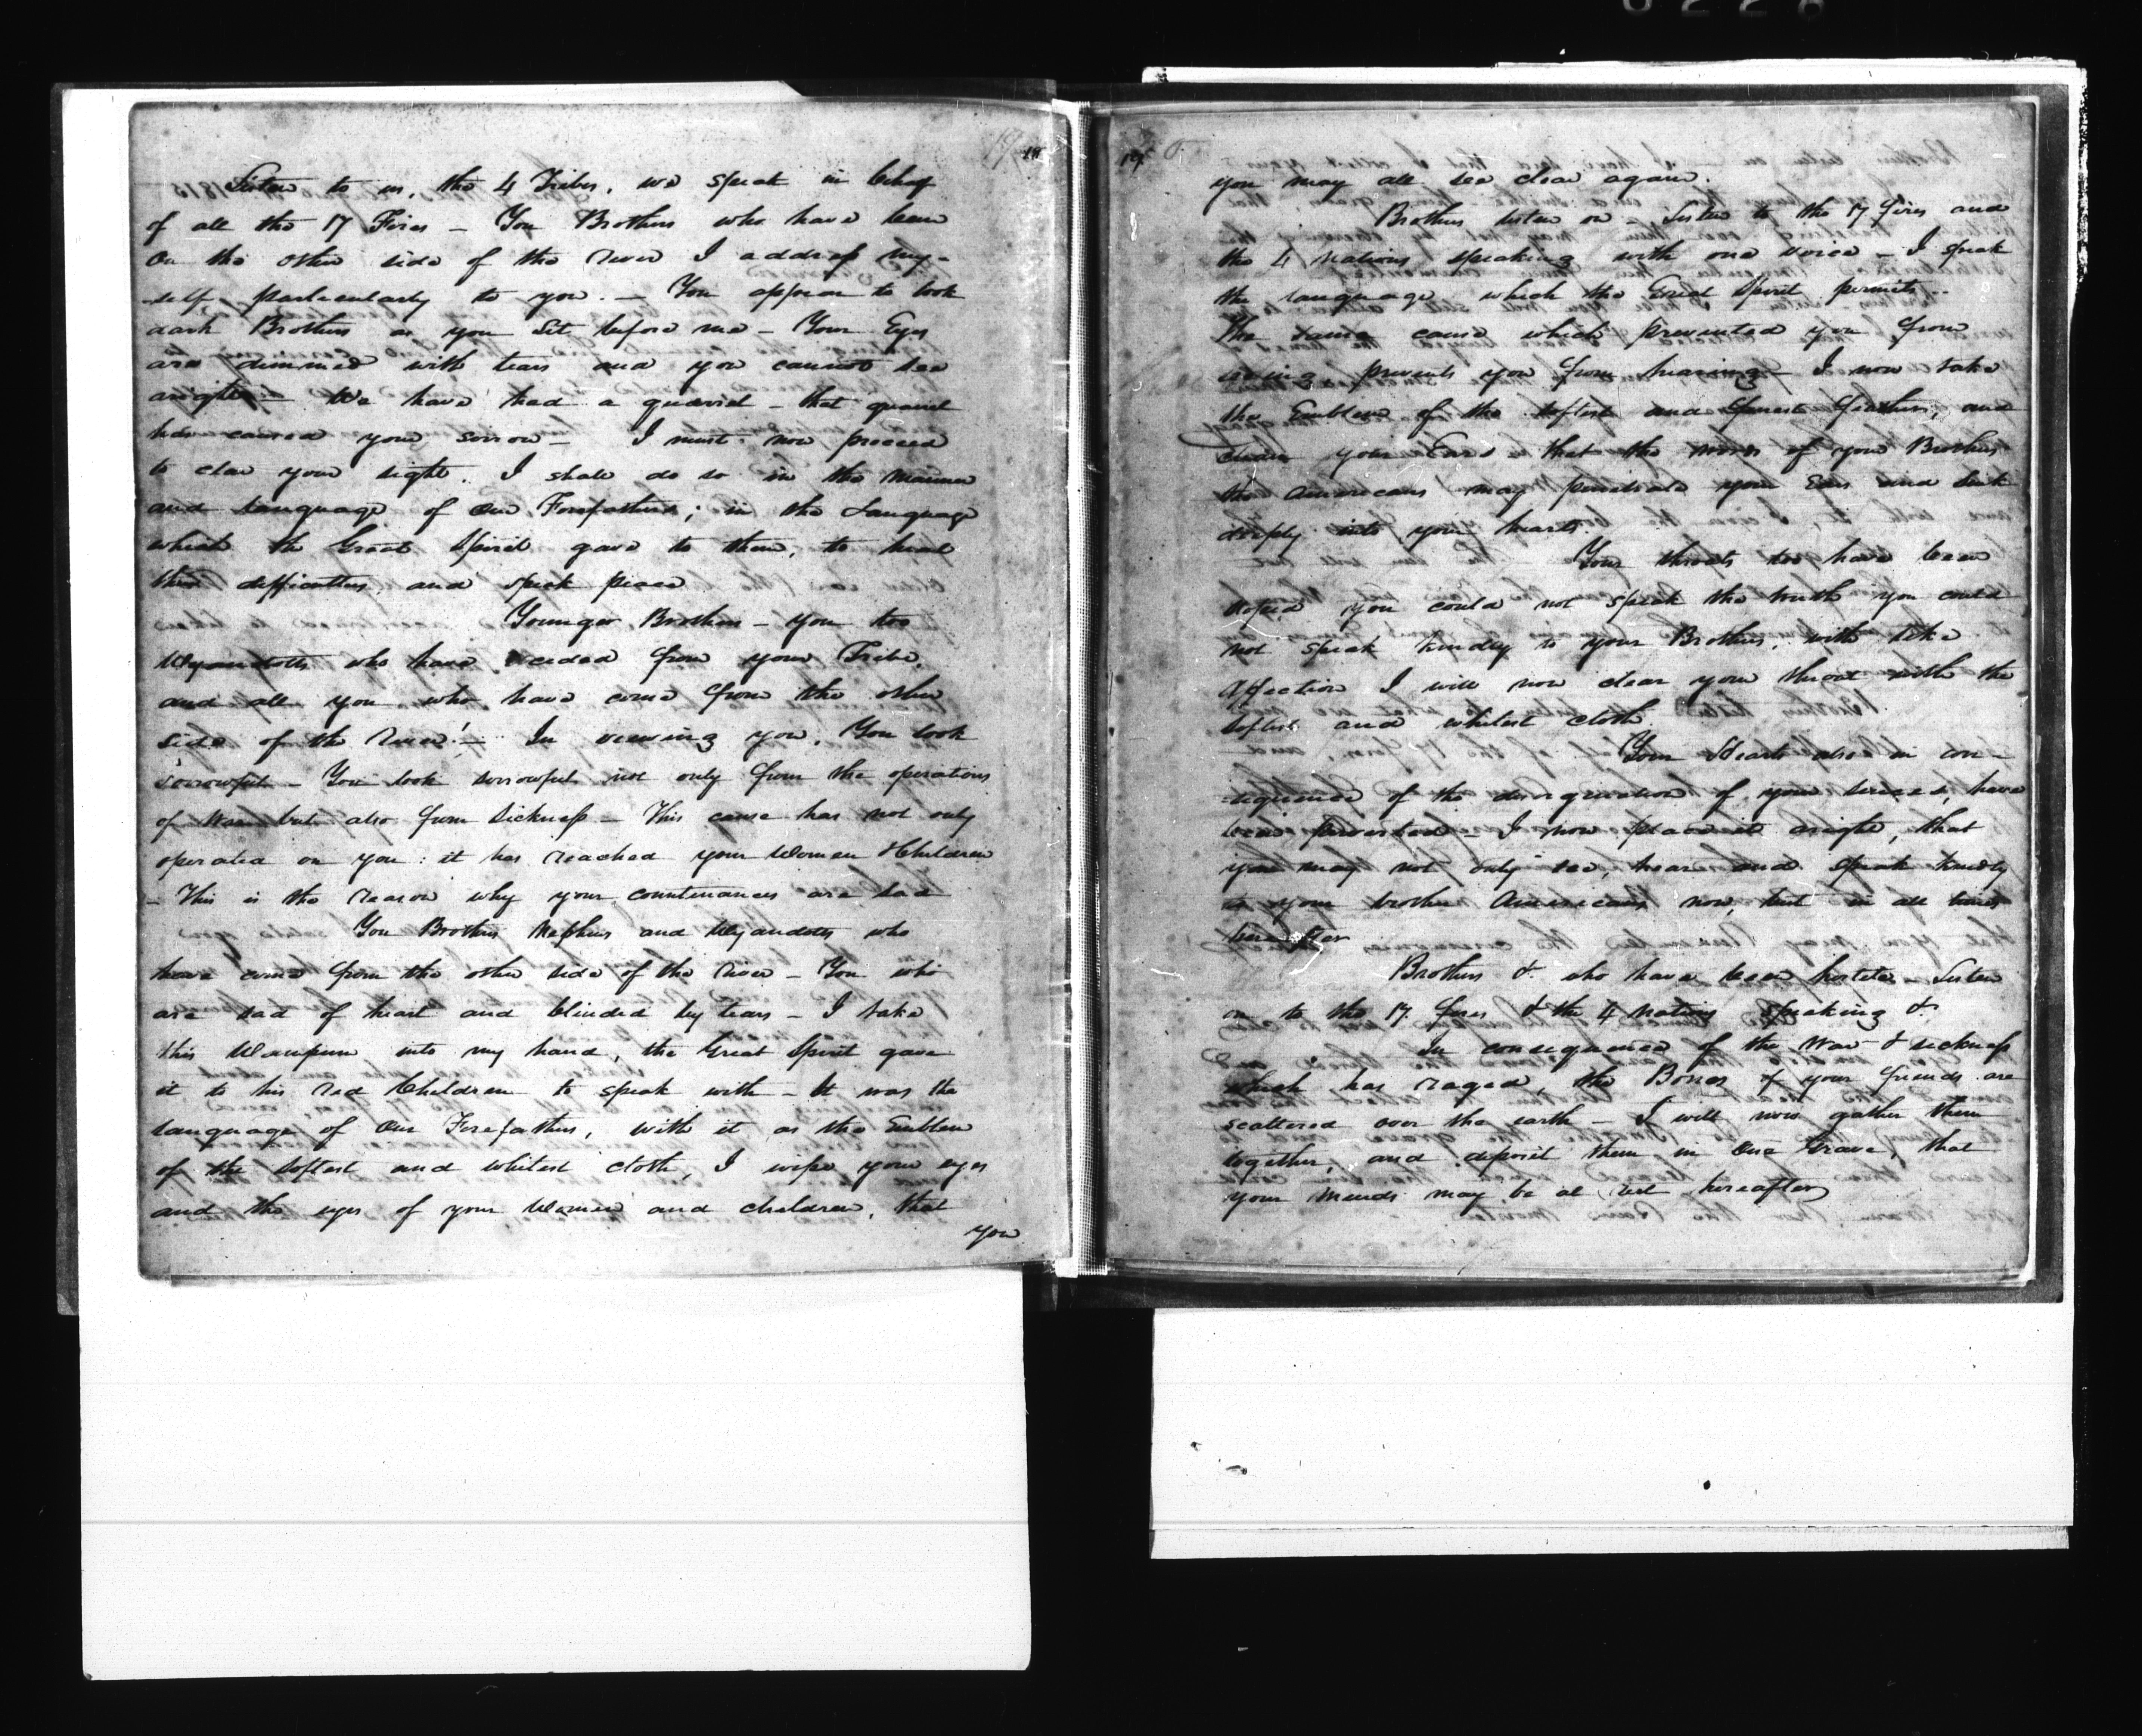 Listen to us, the 4 Tribes, we speak in behalf
of all the 17 Fires - You Brothers who have been
on the other side of the river I address my-
self particularly to you. - You appear to look
dark Brothers as you sit before me - Your Eyes
are dimmed with tears and you cannot see
aright - We have had a quarrel - that quarrel
has caused your sorrow - I must now proceed
to clear your sight. I shall do so in the manner
and Language of our Forefathers; in the Language
which the Great Spirit gave to them, to heal
their difficulties, and speak peace
Younger Brothers - you too
Wyandotts who have seceded from your Tribe,
and all you who have come from the other
side of the river! - In viewing you, You look
sorrowful - You look sorrowful not only from the operations
of War but also from Sickness - This cause has not only
operated on you: it has reached your Women & Children
- This is the reason why your countenances are sad
You Brothers Nephews and Wyandotts who
have come from the other side of the river - You who
are sad of heart and blinded by tears - I take
this Waupum into my hand, the Great Spirit gave
it to his red Children to speak with - It was the
language of our Forefathers, with it as the Emblem
of the softest and whitest cloth, I wipe your eyes
and the eyes of your Women and children, that
you
19
you may all see clear again.
Brothers listen on - Listen to the 17 fires and
the 4 nations speaking with one voice - I speak
the language which the Great Spirit permits -
The same cause which prevented you from
seeing, prevents you from hearing - I now take
the Emblem of the softest and finest feathers, and
clean your Ears that the words of your Brothers
the Americans may penetrate your Ears and sink
deeply into your hearts.
Your throats too have been
stoped you could not speak the truth you could
not speak kindly to your Brothers, with like
affection I will now clear your throat with the
softest and whitest cloth.
Your Hearts also in con-
sequence of the disorganization of your senses, have
been perverted - I now place it aright, that
you may not only see, hear and speak kindly
to your brother Americans now, but in all times
hereafter
Brothers &c who have been hostile - Listen
on to the 17 fires & the 4 Nations speaking &c
In consequence of the War & sickness
which has raged, the Bones of your friends are
scattered over the earth - I will now gather them
together, and deposit them in one Grave, that
your minds may be at rest hereafter